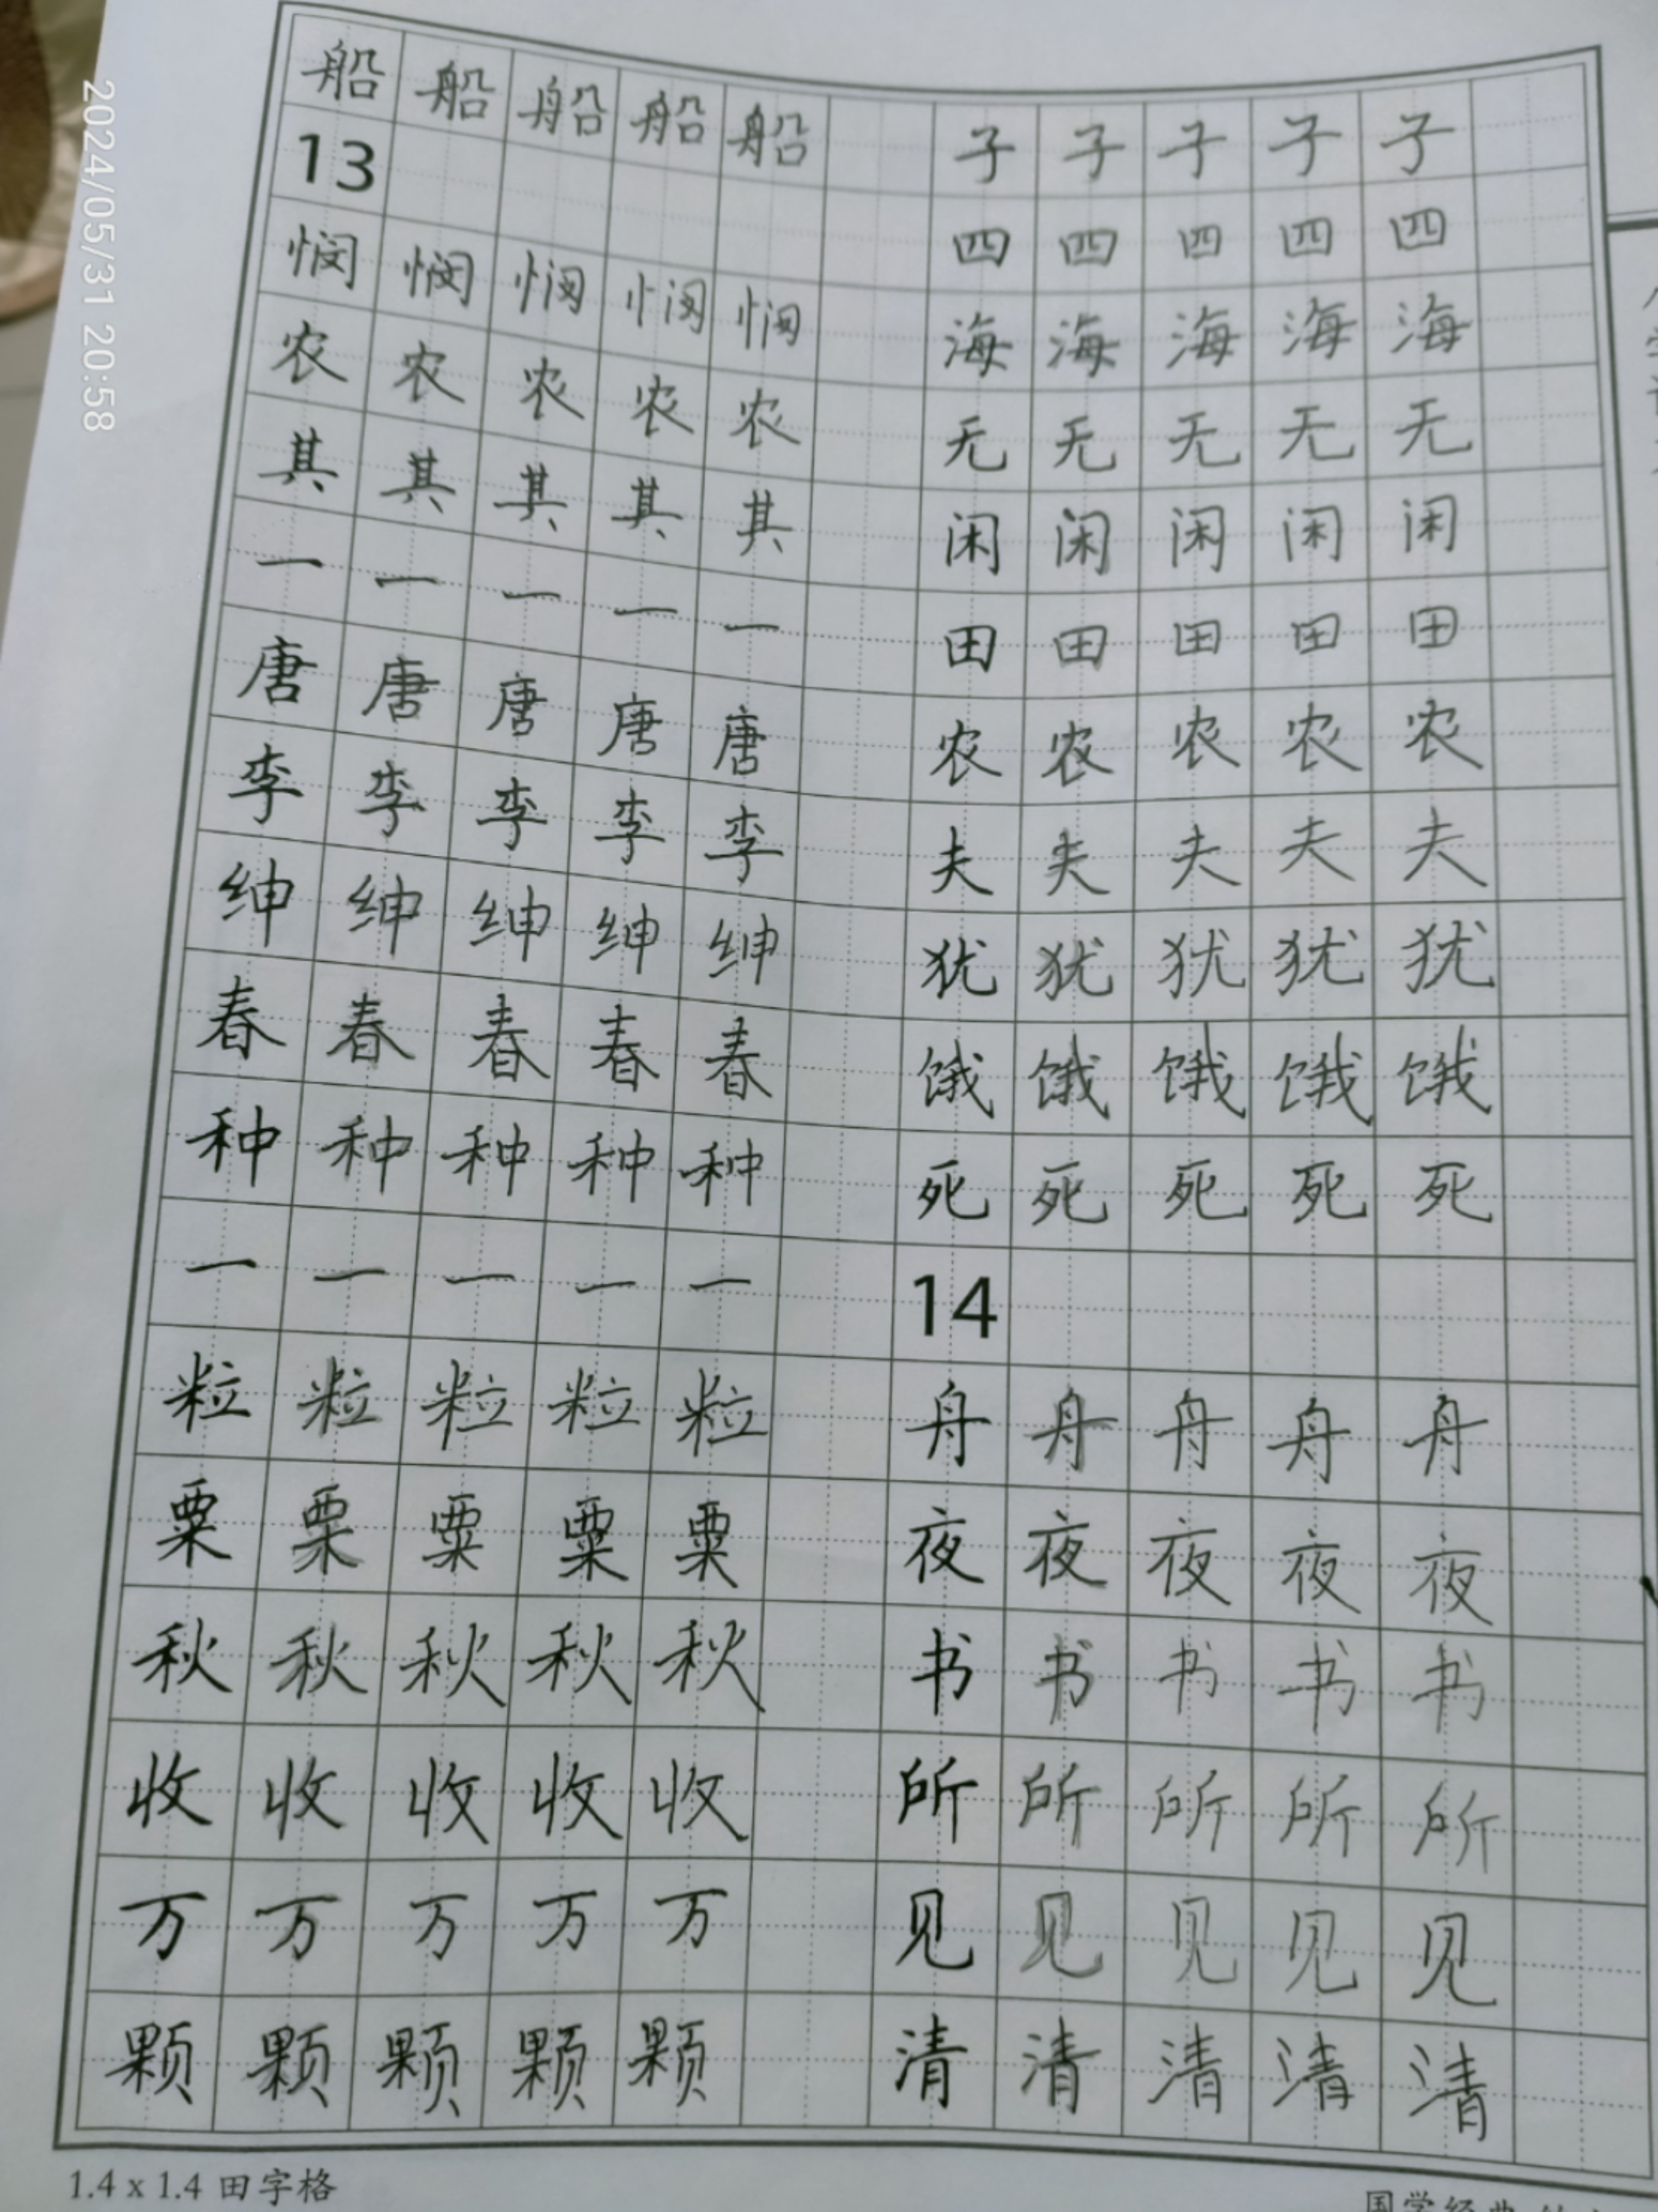 船 船 船 船 船
13
悯 悯 悯 悯 悯
农 农 农 农 农
其 其 其 其 其
一 一 一 一 一
唐 唐 唐 唐 唐
李 李 李 李 李
绅 绅 绅 绅 绅
春 春 春 春 春
种 种 种 种 种
一 一 一 一 一
粒 粒 粒 粒 粒
粟 粟 粟 粟 粟
秋 秋 秋 秋 秋
收 收 收 收 收
万 万 万 万 万
颗 颗 颗 颗 颗
子 子 子 子 子
四 四 四 四 四
海 海 海 海 海
无 无 无 无 无
闲 闲 闲 闲 闲
田 田 田 田 田
农 农 农 农 农
夫 夫 夫 夫 夫
犹 犹 犹 犹 犹
饿 饿 饿 饿 饿
死 死 死 死 死
14
舟 舟 舟 舟 舟
夜 夜 夜 夜 夜
书 书 书 书 书
所 所 所 所 所
见 见 见 见 见
清 清 清 清 清
1.4 x 1.4 田字格
国学经典
2024/05/31 20:58